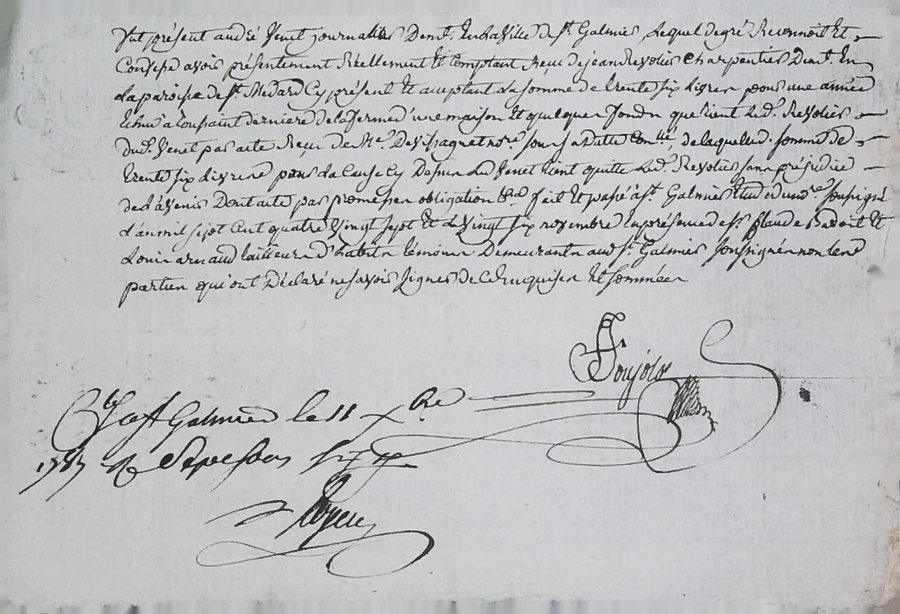 fut présent andré Venet journallier Demt. En la Ville de St. Galmier Lequel de gré Reconnoit Et
Confesse avoir présentement Réellement Et Comptant Reçu de jean Revolier Charpentier Demt. En
La paroisse de St. Medard Cy présent Et acceptant La somme de trente six Livres pour une année
Echue a toussaint derniere de la ferme d'une maison Et quelque fondz que tient Led. Revolier
dud. Venet par acte Reçu de Me. notre. sous sa Datte Contlé, de laquelle d. somme de
trente six Livres pour la Cause Cy Dessus Led Venet tient quitte Led. Revolier sans préjudice
de L'avenir Dont acte par promesse obligation &a. fait Et passé a St. Galmier Etude du nre. soussigné
L'an mil sept Cent quatre Vingt sept Et Le Vingt six novembre En présence de Sr. Claude Badoit Et
Louis arnaud tailleur d'habits témoins Demeurants aud. St. Galmier soussignés non les d
parties qui ont Déclaré ne savoir signer de Ce Enquises Et sommées
Poujols
Cté a St Galmier le 11 xbre
1787